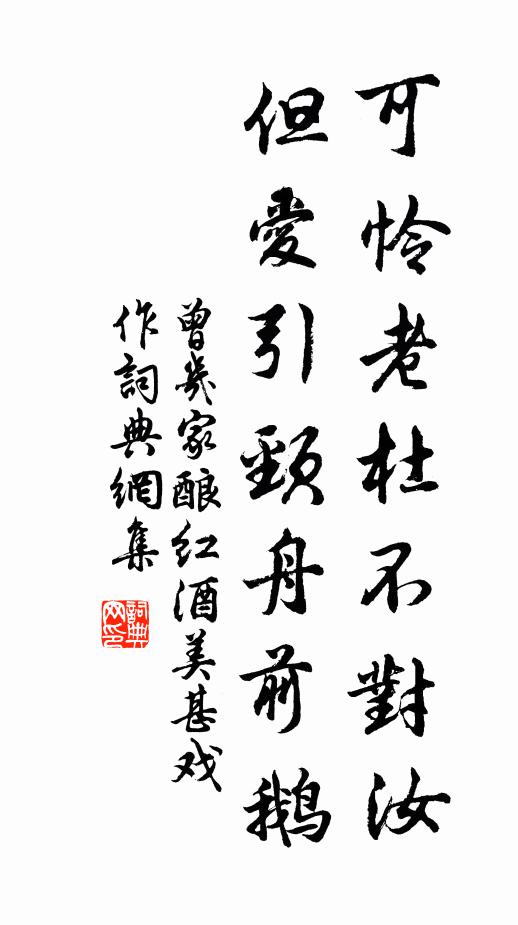 可怜老杜不對汝
但愛引頸舟前鵝
曾幾家酿红酒美甚戏
作詞典網集
詞典网印